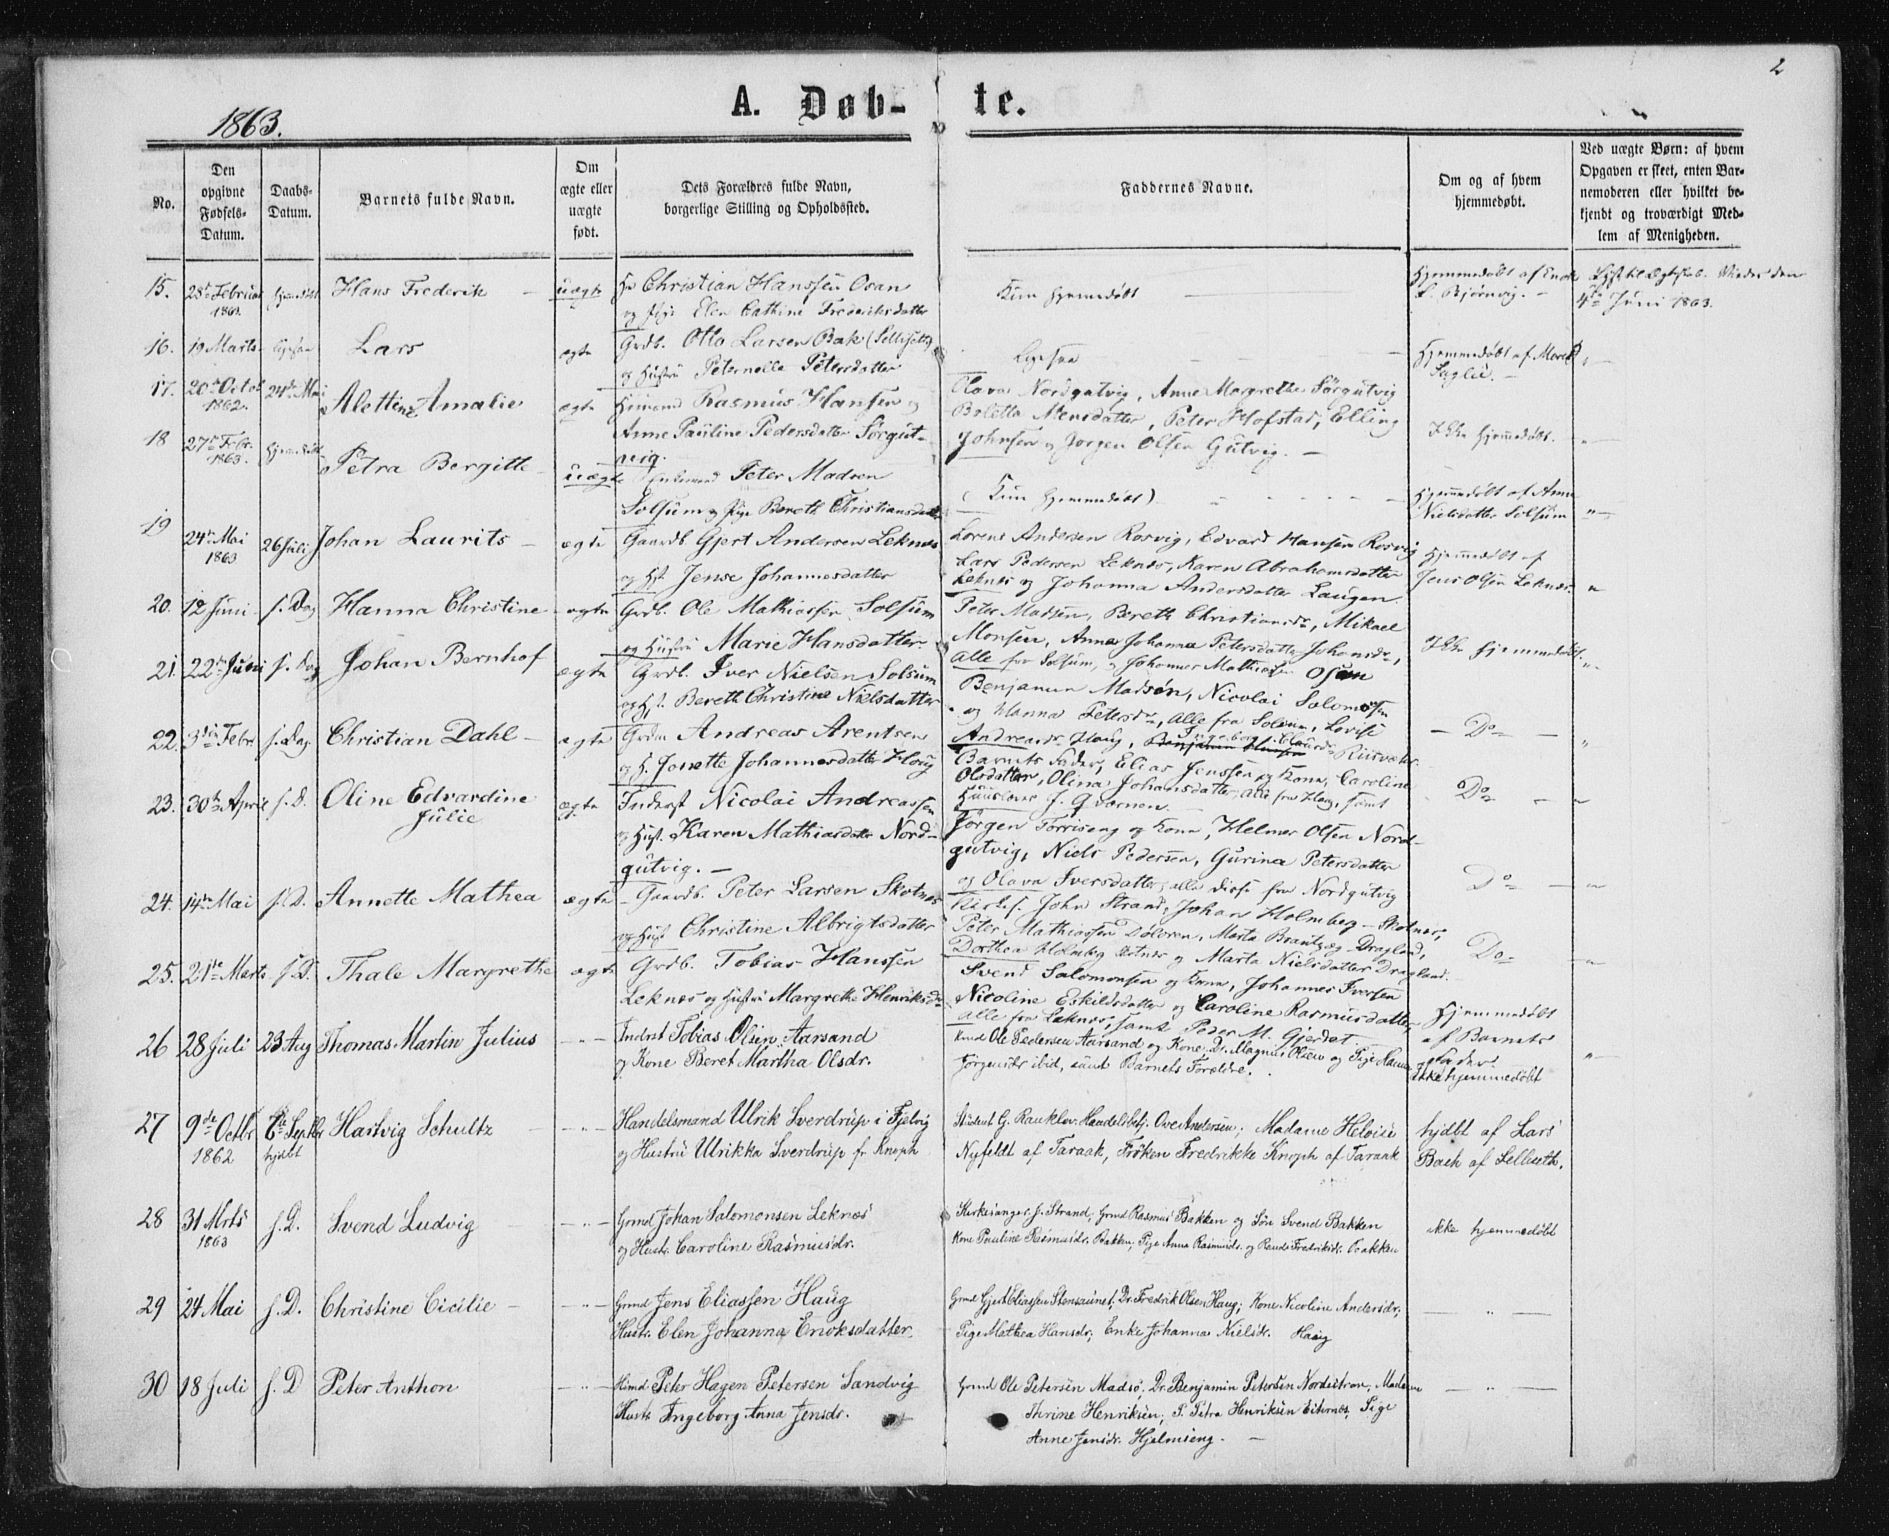 2
A. Døb- te.
1863.
No.
Den opgivne Fødsels-Datum.
Daabs-Datum.
Barnets fulde Navn.
Om ægte eller uægte født.
Dets Forældres fulde Navn, borgerlige Stilling og Opholdssted.
Faddernes Navne.
Om og af hvem hjemmedøbt.
Ved uægte Børn: af hvem Opgaven er skeet, enten Barnemoderen eller hvilket bekjendt og troværdigt Medlem af Menigheden.
15. 28de Februar 1863 Hans Frederik uægte Christian Hanssen Osan
og Pige Elen Cathine Frederiksdatter
Kun hjemmedøbt
Hjemmedøbt af
Bjørnvig.
4de Juni 1863.
16. 19 Marts ligesaa Lars ægte Grdb. Otto Larsen Bak (Sellisæth)
og Hustru Peternelle Petersdatter
Ligesaa
Hjemmedøbt af
17. 20de Octob 1862. 24de Mai Alettine Amalie ægte Rasmus Hansen og
Anne Pauline Pedersdatter Sørgutvig.
Olava Nordgutvig, Anne Margrethe Sørgutvig
Boletta Monsdatter, Peter Hofstad, Elling
Johnsen og Jørgen Olsen Gutvig.
Ikke hjemmedøbt.
18 27de Febr. 1863. Petra Bergitte uægte Peter Madsen
Solsum og Pige Bereth Christiansdatter
(Kun hjemmedøbt)
Hjemmedøbt af Anne
Nielsdatter Solsum
19 24de Mai 1863 26 Juli Johan Laurits ægte Gaardb. Gjert Andersen Leknes
og Hst. Jense Johannesdatter
Lorens Andersen Rosvig, Edvard Hansen Rosvig
Lars Pedersen Leknes, Karen Abrahamsdatter
Leknes og Johanna Andersdatter Laugen.
Hjemmedøbt af
Jens Olsen Leknes.
20. 12 Juni s. Dag Hanna Christine ægte Grdb. Ole Mathiassen Solsum
og Hustru Marie Hansdatter
Peter Madsen, Bereth Christiansdr, Mikael
Monsen, Anne Johanna Petersdatter Johansdr,
Alle fra Solsum, og Johannes Mathiasen Osan
Ikke hjemmedøbt.
21. 22de Juni s. Dag Johan Bernhof ægte Grdb. Iver Nielsen Solsum
og Hst. Bereth Christine Nielsdatter
Benjamin Madsøn, Nicolai Solomosen
og Hanna Petersdr, Alle fra Solsum, Lovise
22. 3die Febr s. Dag Christian Dahl ægte Andreas Arentsen
og H. Jenette Johannesdatter Haug
Andreasdr Haug, Ingeborg
Barnets Fader, Elias Jenssen og Kone, Caroline
Olsdatter, Olina Johansdatter, Alle fra Haug, samt
Do
23. 30te April s. D. Oline Edvardine Julie ægte Inderst Nicolai Andreassen
og Hust. Karen Mathiasdatter Nordgutvig.
Jørgen Torriseng og Kone, Helmer Olsen Nordgutvig,
Niels Pedersen, Gurina Petersdatter
og Olava Iversdatter, alle disse fra Nordgutvig
Do
24. 14de Mai s. D. Annette Mathea ægte Gaardb. Peter Larsen Skotnes
og Hust Christine Albrigtsdatter
Kirkes. John Strand, Johan Holmberg Skotnes,
Peter Mathiassen Doloren, Marta Brantzæg Dragland,
Dorthea Holmberg Skotnes og Marta Nielsdatter Dragland.
Do
25. 21de Marts s. D. Thale Margrethe ægte Grdb. Tobias Hanssen
Leknes og Hustru Margrethe Henriksdr
Svend Salomonsen og Kone, Johannes Iversen
Nicoline Eskildsdatter og Caroline Rasmusdatter
alle fra Leknes, samt Peder M. Gjerdet
Do
Hjemmedøbt
af Barnets
Fader
26 28 Juli 23 Aug Thomas Martin Julius — " — Indrst Tobias Olsen Aarsand
og Kone Beret Martha Olsdr.
Grmd Ole Pedersen Aarsand og Kone, Dr. Magnus Olsen og Pige Hanna
Jørgensdr ibid, samt Barnets Forældre.
ikke hjemmedøbt
27 9de Octbr 1862 6te Septbr hjdbt Hartvig Schultz — " — Handelsmand Ulrik Sverdrup i Fjelvig
og Hustru Ulrikka Sverdrup f. Knoph
Student G. Rauklev, Handelsbetj. Ove Andersen; Madame Heloise
Nyfeldt af Taraak, Frøken Fredrikke Knoph af Taraak
hjdbt af Lars
Bach af Selleseth.
28 31 Mrts 1863 s. D. Svend Ludvig — " — Grmd Johan Salomonsen Leknes
og Hustr. Caroline Rasmusdr.
Kirkesanger J. Strand, Grmd Rasmus Bakken og Søn Svend Bakken
Kone Pauline Rasmusdr. Bakken, Pige Anna Rasmusdr. og Rande Fredriksdr. Bakken
ikke hjemmedøbt
29 24 Mai s. D. Christine Cicilie — " — Grmd Jens Eliassen Haug
Hustr. Elen Johanna Enoksdatter
Grmd Gjert Eliassen Stensaunet; Dr. Fredrik Olsen Haug; Kone Nicoline Andersdr;
Pige Mathea Hansdr; Enke Johanna Nielsdr. Haug
— " —
30 18 Juli s. D Peter Anthon — " — Hsmd Peter Hagen Petersen Sandvig
Hustr. Ingeborg Anna Jensdr.
Grmd Ole Petersen Madsø, Dr. Benjamin Petersen Nordestrøm, Madame
Thrine Henriksen; P. Petra Henriksen Eiternes, Pige
Anne Jensdr. Hjelmseng.
— " —